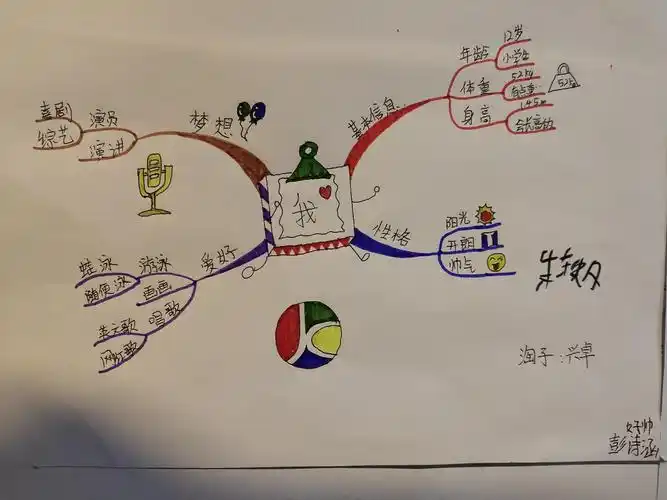 我
基本信息
年龄
12岁
小学生
体重
52kg
有点重
52kg
身高
145cm
会长高的
性格
阳光
开朗
帅气
爱好
游泳
蛙泳
随便泳
画画
唱歌
英文歌
网红歌
梦想
演员
喜剧
综艺
演讲
淘子:兴卓
好帅
彭诗涵